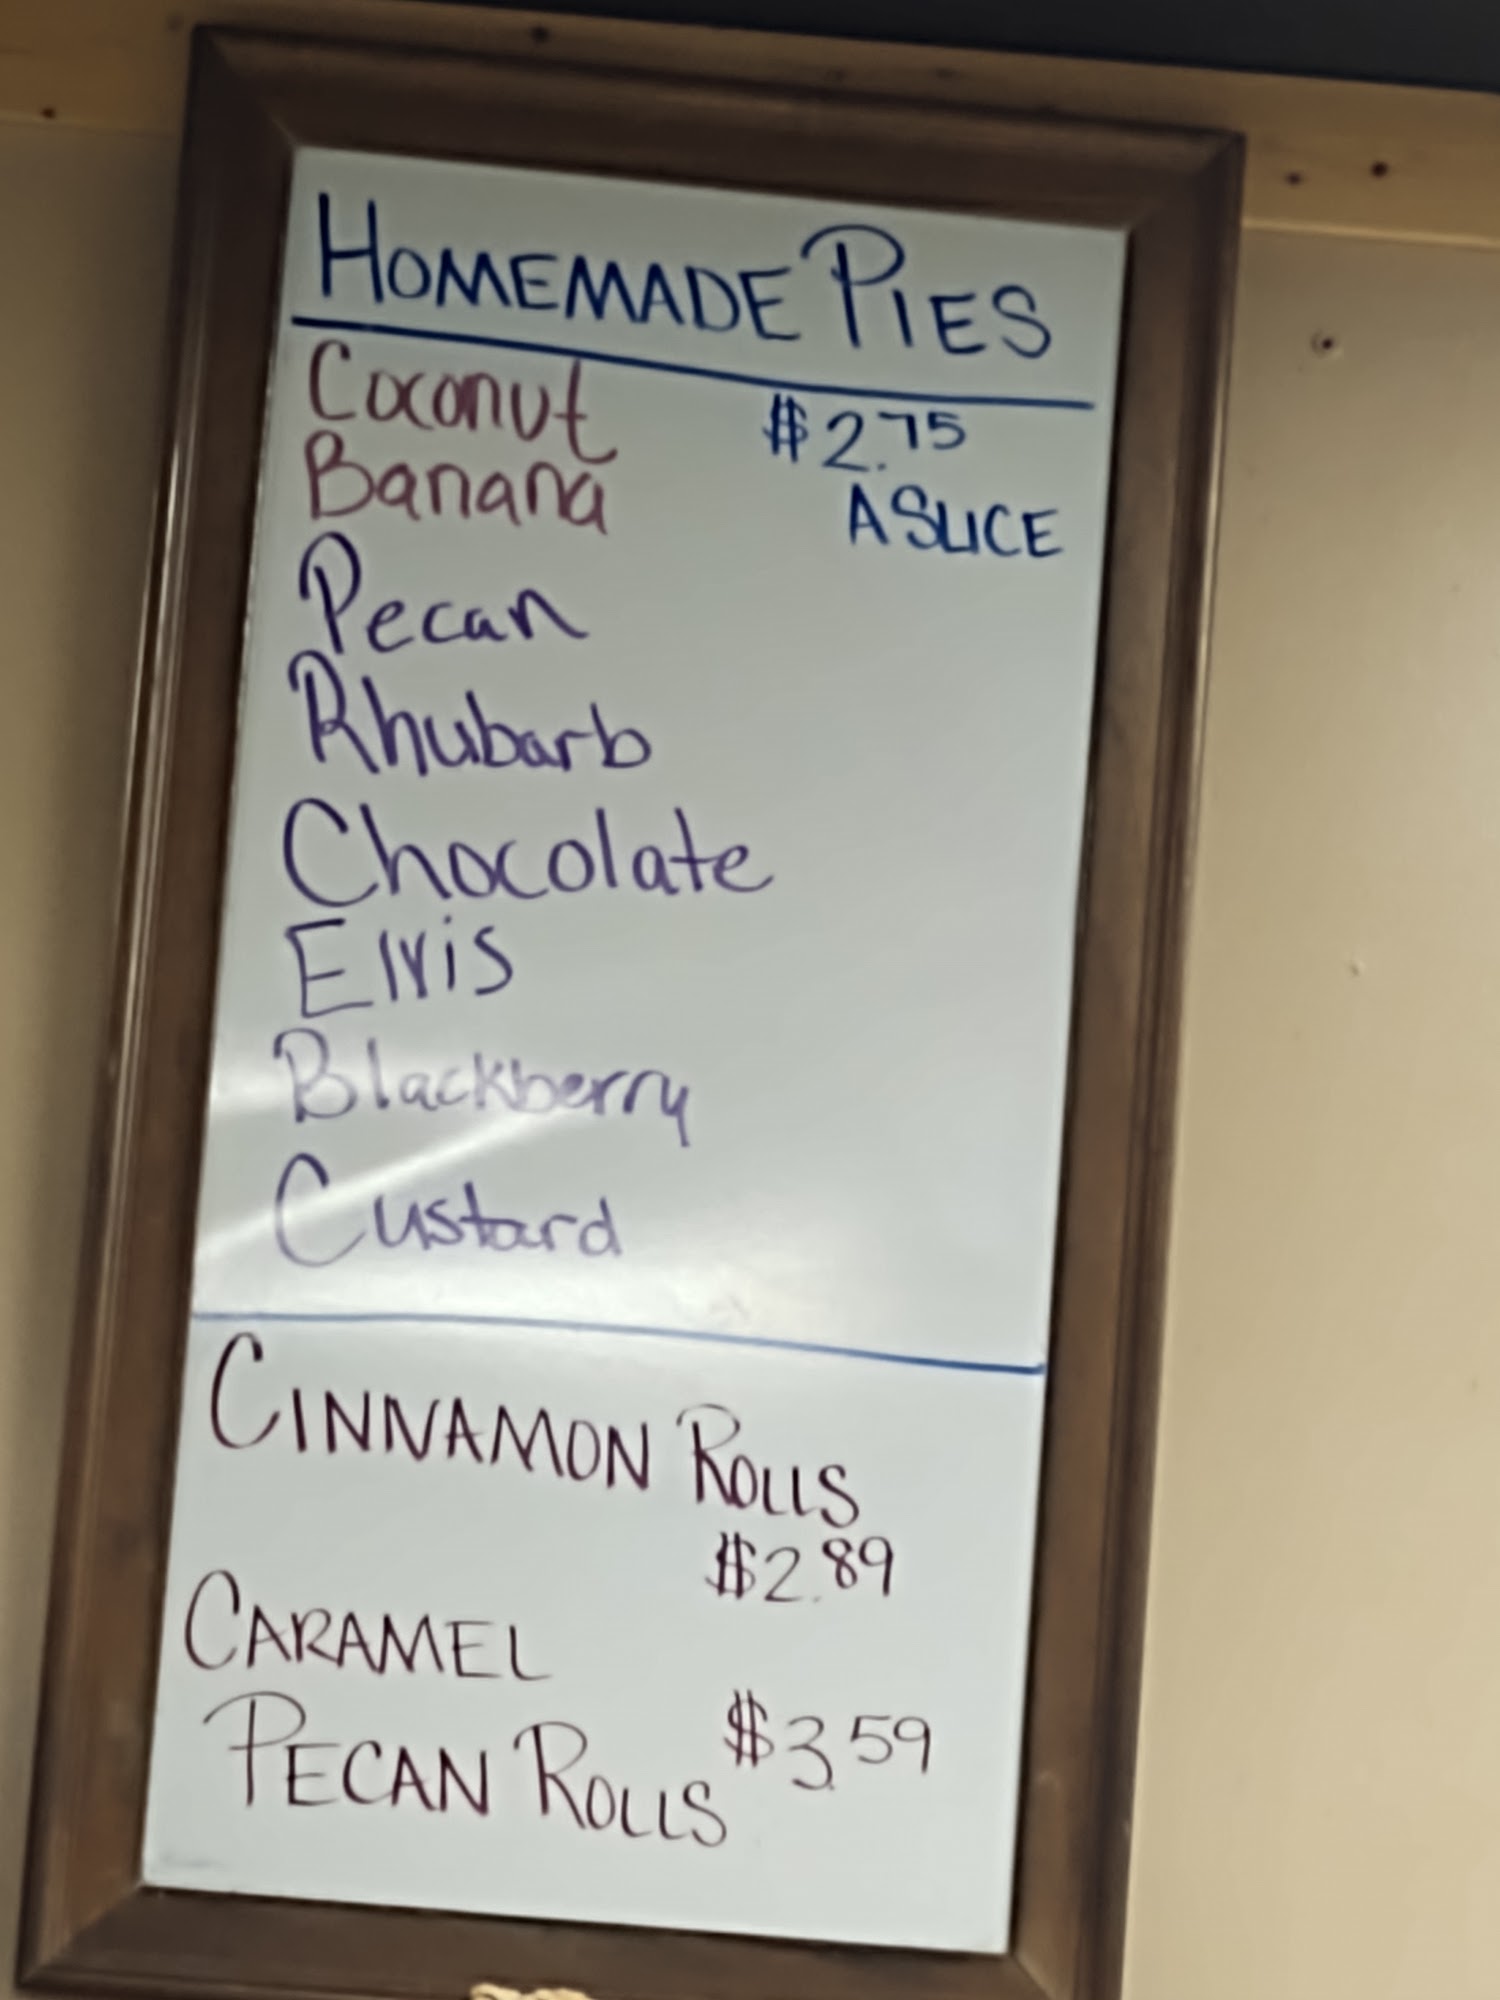 HOMEMADE PIES
Coconut $2.75
Banana A SLICE
Pecan
Rhubarb
Chocolate
Elvis
Blackberry
Custard
CINNAMON ROLLS
$2.89
CARAMEL
PECAN ROLLS $3.59